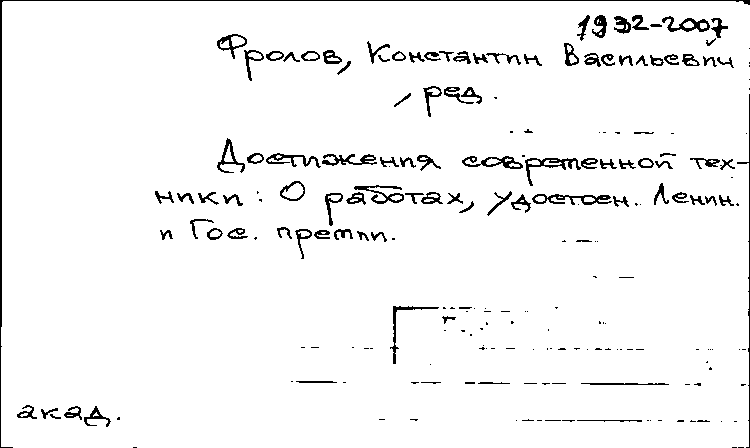 1932-2007
Фролов, Константин Васильевич
, ред.
Достижения современной тех-
ники: О работах, удостоен. Ленин.
и Гос. премии.
акад.